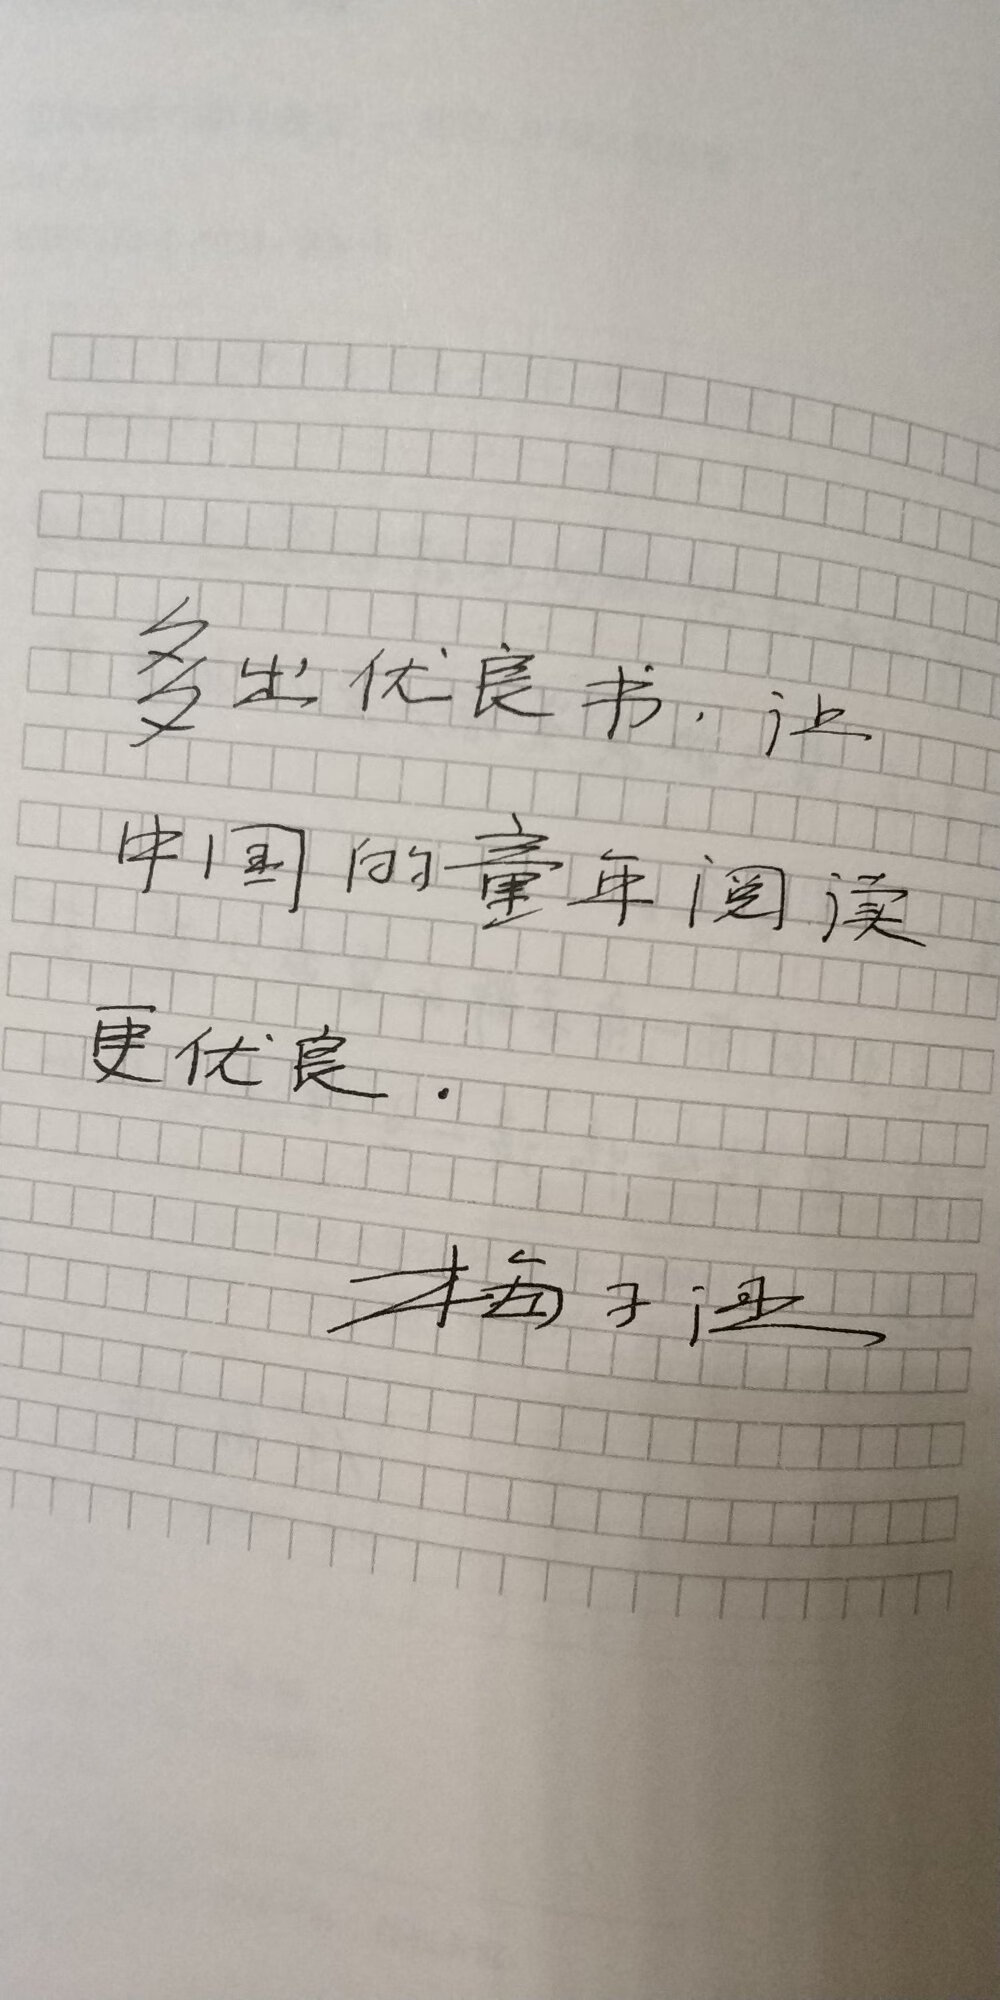 多出优良书，让
中国的童年阅读
更优良．
梅子涵